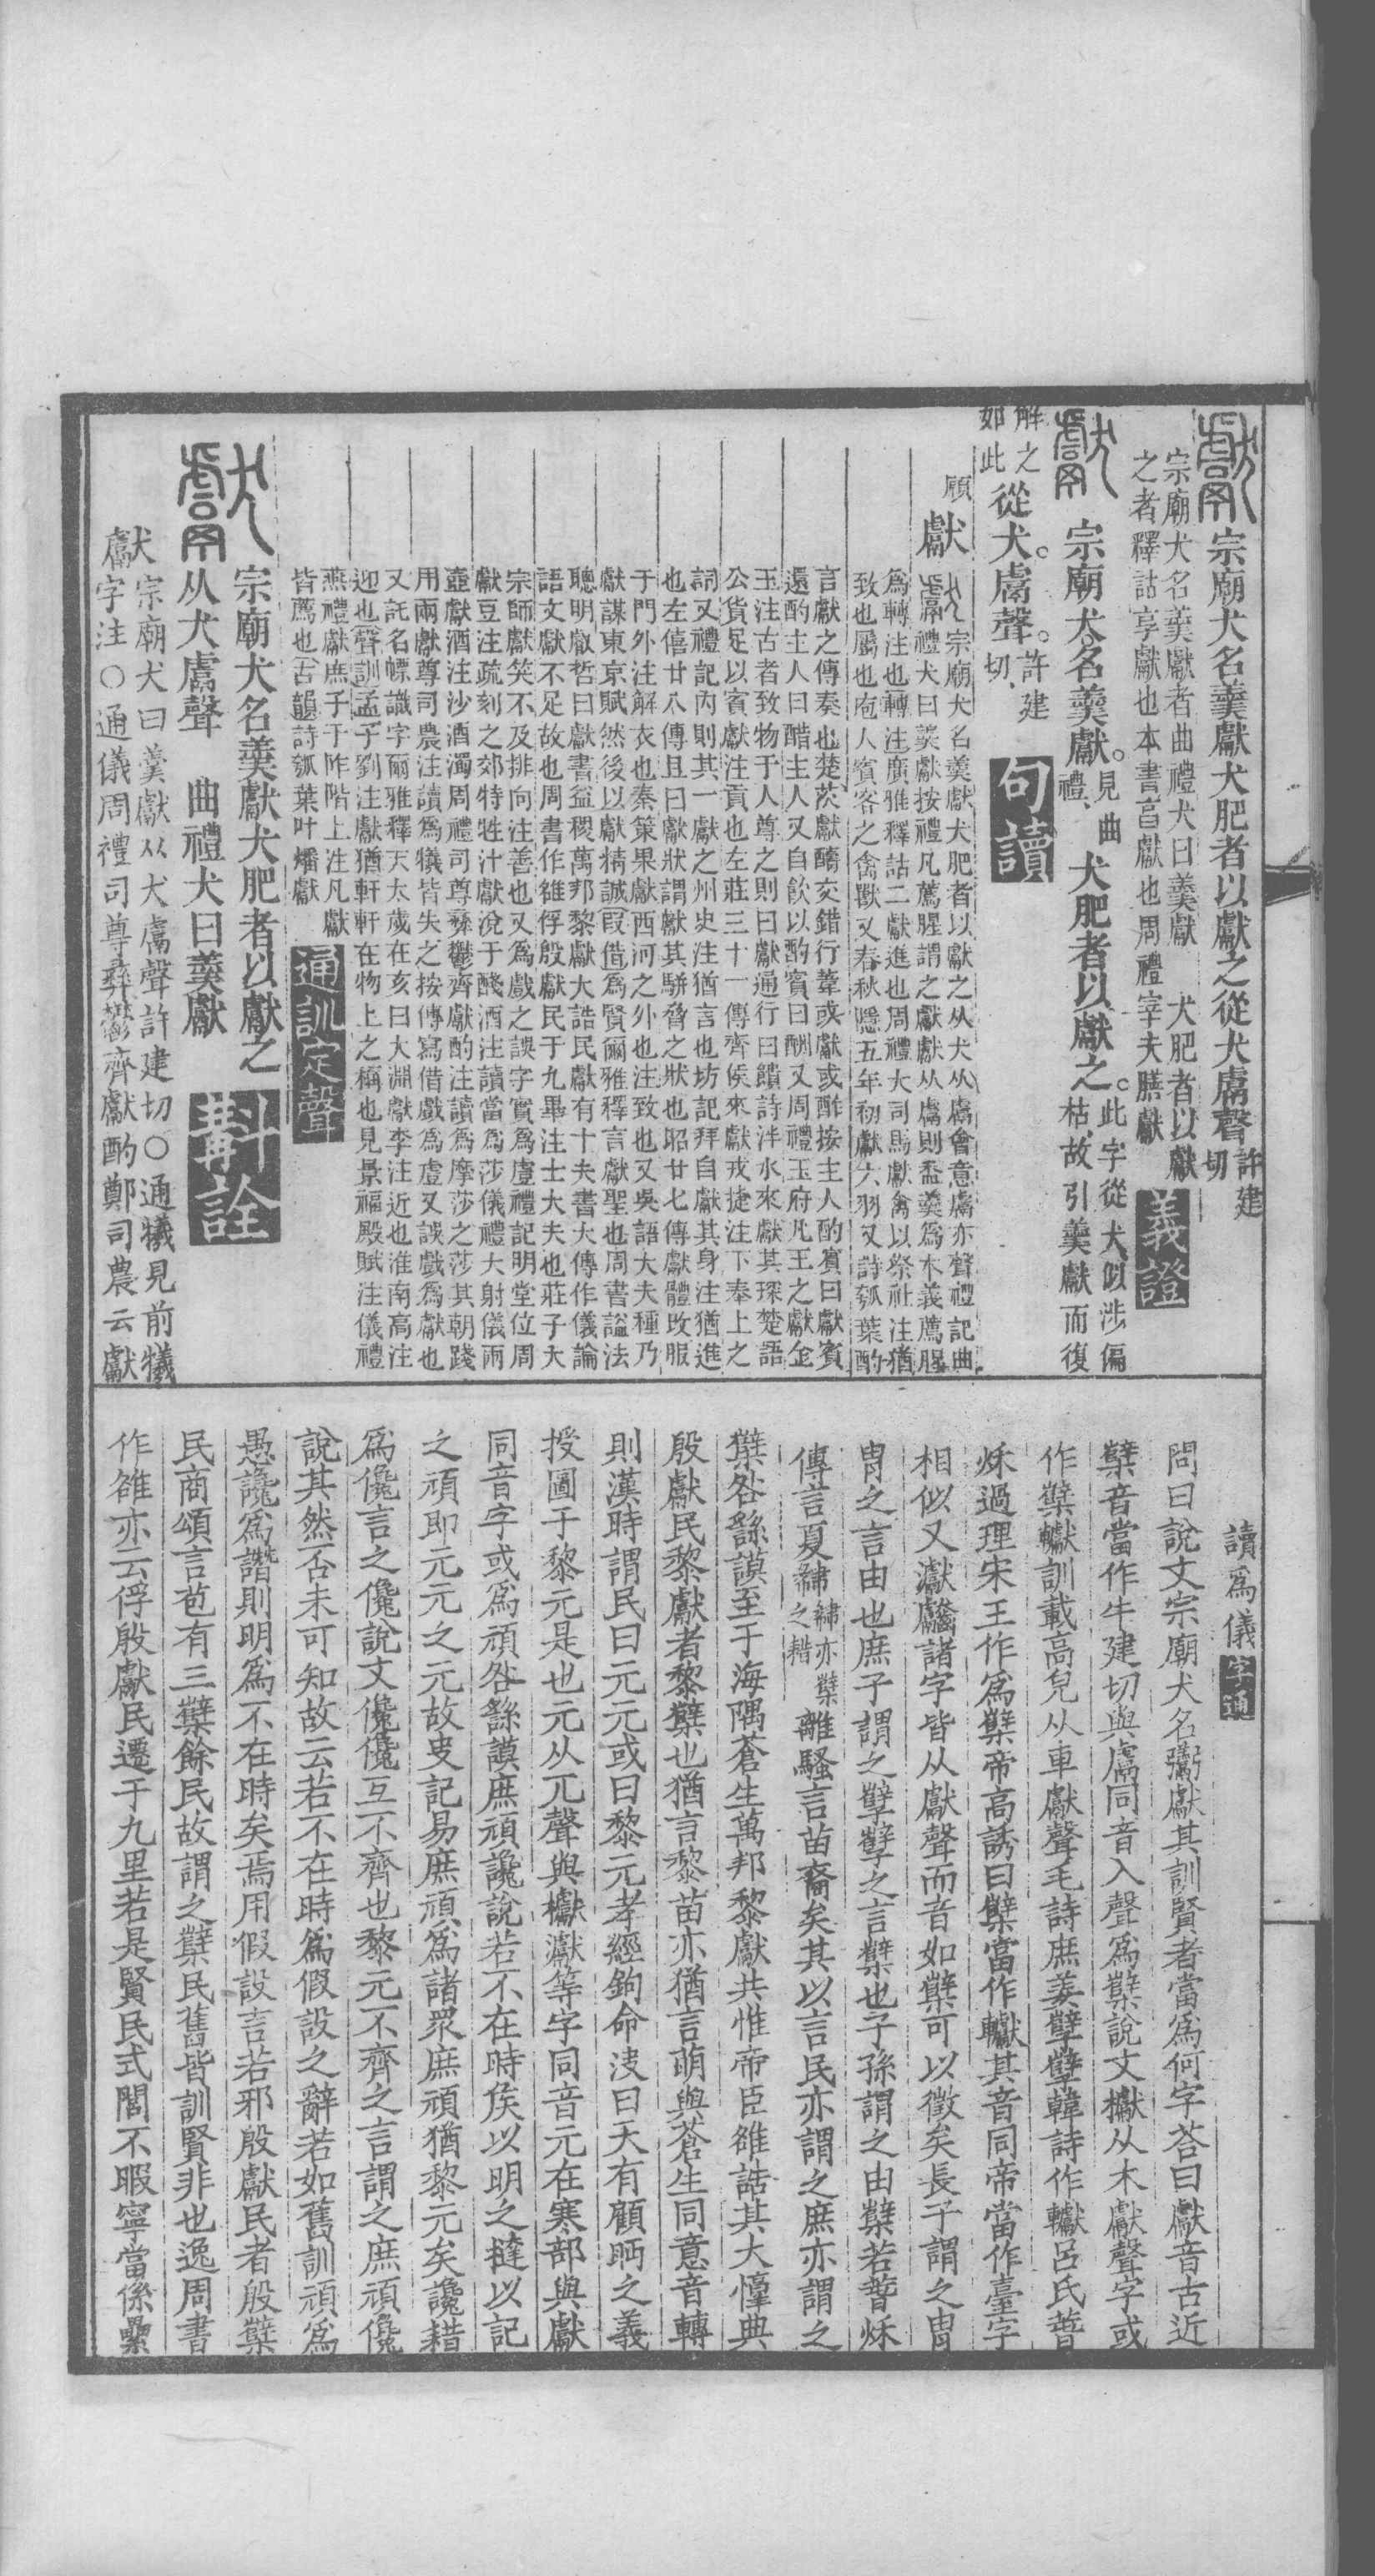 宗廟犬名羹獻犬肥者以獻之從犬鬳聲許建切
宗廟犬名羹獻者曲禮犬曰羹獻　犬肥者以獻
之者釋詁享獻也本書㐭獻也周禮宰夫膳獻
義證
宗廟犬名羹獻。見曲禮、犬肥者以獻之。此字從犬似涉偏枯、故引羹獻而復
解之如此從犬。鬳聲。許建切、
句讀
願
獻
宗廟犬名羹獻犬肥者以獻之从犬从鬳會意鬳亦聲禮記曲
禮犬曰羹獻按禮凡薦腥謂之獻獻从鬳則盉羹爲本義薦腥
爲轉注也轉注廣雅釋詁二獻進也周禮大司馬獻禽以祭社注猶
致也屬也庖人賓客之禽獸又春秋隱五年初獻六羽又詩瓠葉酌
言獻之傳奏也楚茨獻醻交錯行葦或獻或酢按主人酌賓曰獻賓
還酌主人曰醋主人又自飲以酌賓曰酬又周禮玉府凡王之獻金
玉注古者致物于人尊之則曰獻通行曰饋詩泮水來獻其琛楚語
公貨足以賓獻注貢也左莊三十一傳齊侯來獻戎捷注下奉上之
詞又禮記內則其一獻之州史注猶言也坊記拜自獻其身注猶進
也左僖廿八傳且曰獻狀謂獻其駢脅之狀也昭廿七傳獻體改服
于門外注解衣也秦策果獻西河之外也注致也又吳語大夫種乃
獻謀東京賦然後以獻精誠叚借爲賢爾雅釋言獻聖也周書謚法
聰明叡哲曰獻書益稷萬邦黎獻大誥民獻有十夫書大傳作儀論
語文獻不足故也周書作雒俘殷獻民于九畢注士大夫也莊子大
宗師獻笑不及排向注善也又爲戲之誤字實爲䖒禮記明堂位周
獻豆注疏刻之郊特牲汁獻涗于醆酒注讀當爲莎儀禮大射儀兩
壺獻酒注沙酒濁周禮司尊彝鬱齊獻酌注讀爲摩莎之莎其朝踐
用兩獻尊司農注讀爲犧皆失之按傳寫借戲爲虘又誤戲爲獻也
又託名幖識字爾雅釋天太歲在亥曰大淵獻李注近也淮南高注
迎也聲訓孟子劉注獻猶軒軒在物上之稱也見景福殿賦注儀禮
燕禮獻庶子于阼階上注凡獻
皆薦也古韻詩瓠葉叶燔獻
通訓定聲
宗廟犬名羹獻犬肥者以獻之
从犬鬳聲　曲禮犬曰羹獻
斠詮
犬宗廟犬曰羹獻从犬鬳聲許建切〇通犧見前犧
獻字注〇通儀周禮司尊彝鬱齊獻酌鄭司農云獻
讀爲儀字通
問曰說文宗廟犬名鬻獻其訓賢者當爲何字荅曰獻音古近
櫱音當作牛建切與鬳同音入聲爲櫱說文㰕从木獻聲字或
作櫱轥訓載高皃从車獻聲毛詩庶姜孼孼韓詩作轥呂氏萅
秌過理宋王作爲櫱帝高誘曰櫱當作轥其音同帝當作臺字
相似又瀗齾諸字皆从獻聲而音如櫱可以徵矣長子謂之冑
冑之言由也庶子謂之孼孼之言櫱也子孫謂之由櫱若萅秌
傳言夏䋛䋛亦櫱之䊝離騷言苗裔矣其以言民亦謂之庶亦謂之
櫱咎繇謨至于海隅蒼生萬邦黎獻共惟帝臣雒誥其大惇典
殷獻民黎獻者黎櫱也猶言黎苗亦猶言萌與蒼生同意音轉
則漢時謂民曰元元或曰黎元孝經鉤命決曰天有顧眄之義
授圖于黎元是也元从兀聲與㰕瀗等字同音元在寒部與獻
同音字或爲頑咎繇謨庶頑讒說若不在時矦以明之撻以記
之頑即元元之元故史記易庶頑爲諸衆庶頑猶黎元矣讒䊝
爲儳言之儳說文儳儳互不齊也黎元不齊之言謂之庶頑儳
說其然否未可知故云若不在時爲假設之辭若如舊訓頑爲
愚讒爲譖則明爲不在時矣焉用假設言若邪殷獻民者殷櫱
民商頌言苞有三櫱餘民故謂之櫱民舊皆訓賢非也逸周書
作雒亦云俘殷獻民遷于九里若是賢民式閭不暇寧當係纍